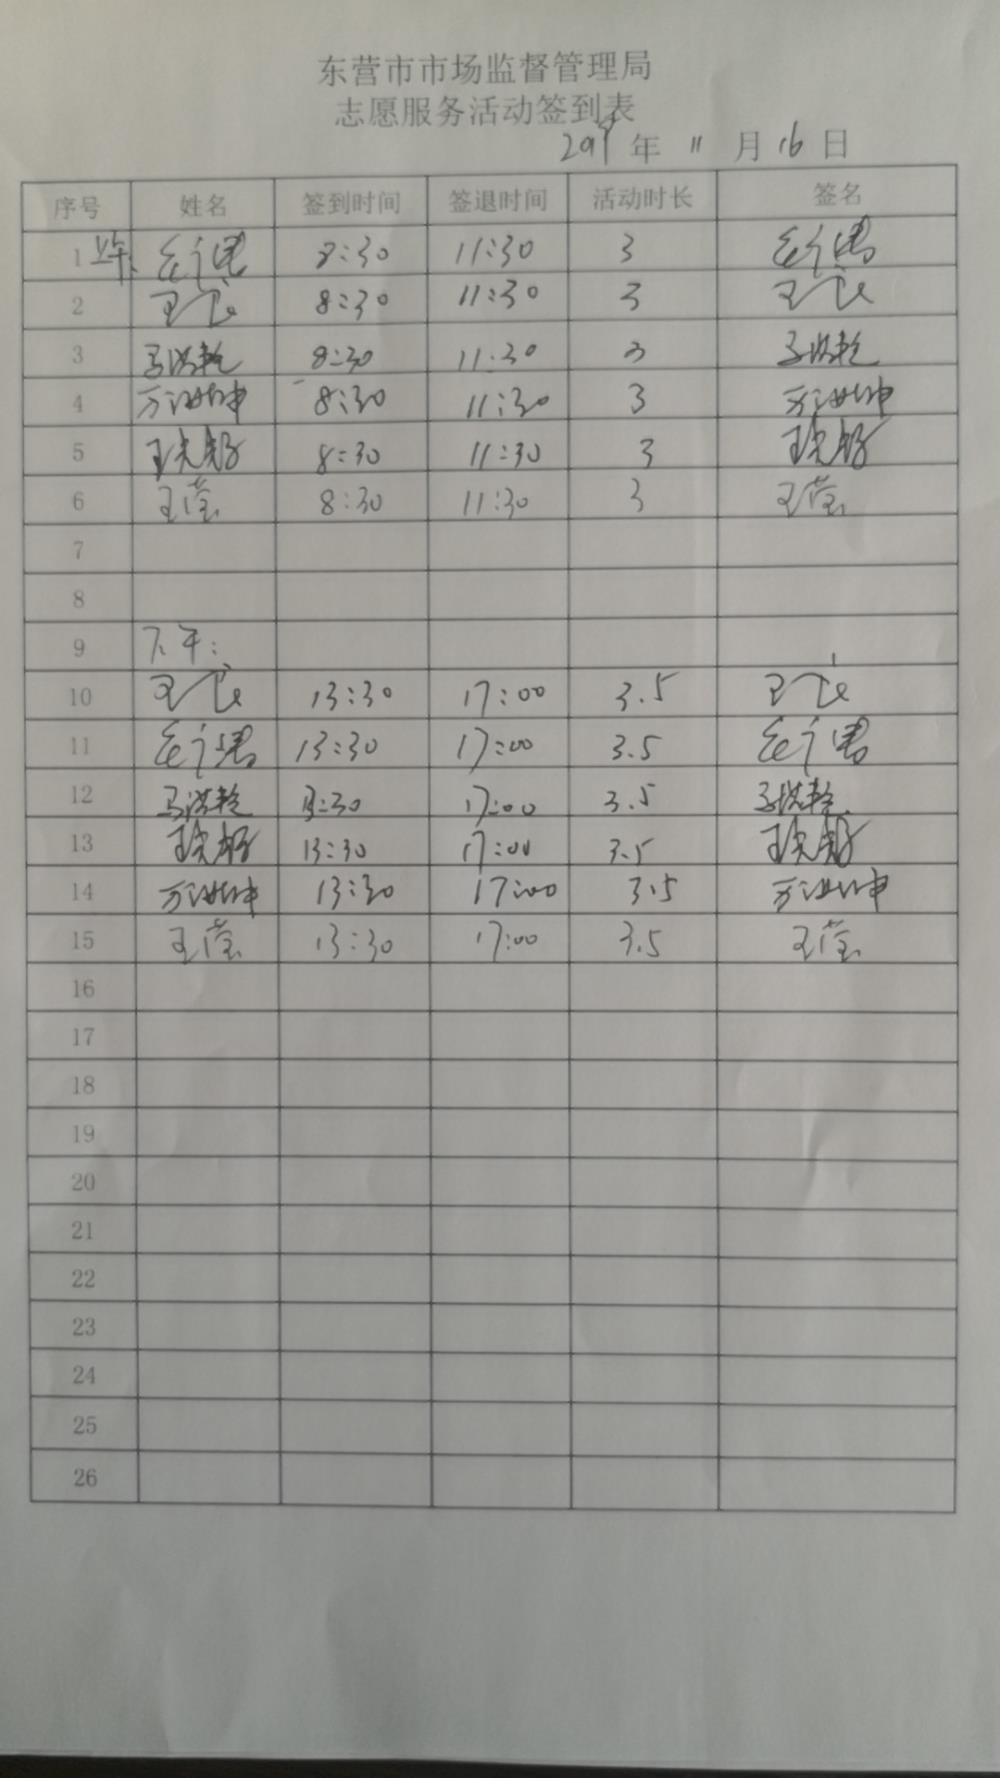 东营市市场监督管理局
志愿服务活动签到表
2019 年 11 月 16 日
序号 姓名 签到时间 签退时间 活动时长 签名
1 上午: 8:30 11:30 3
2 8:30 11:30 3
3 马洪乾 8:30 11:30 3 马洪乾
4 万汝坤 8:30 11:30 3 万汝坤
5 8:30 11:30 3
6 王莹 8:30 11:30 3 王莹
7
8
9 下午:
10 13:30 17:00 3.5
11 13:30 17:00 3.5
12 马洪乾 13:30 17:00 3.5 马洪乾
13 13:30 17:00 3.5
14 万汝坤 13:30 17:00 3.5 万汝坤
15 王莹 13:30 17:00 3.5 王莹
16
17
18
19
20
21
22
23
24
25
26